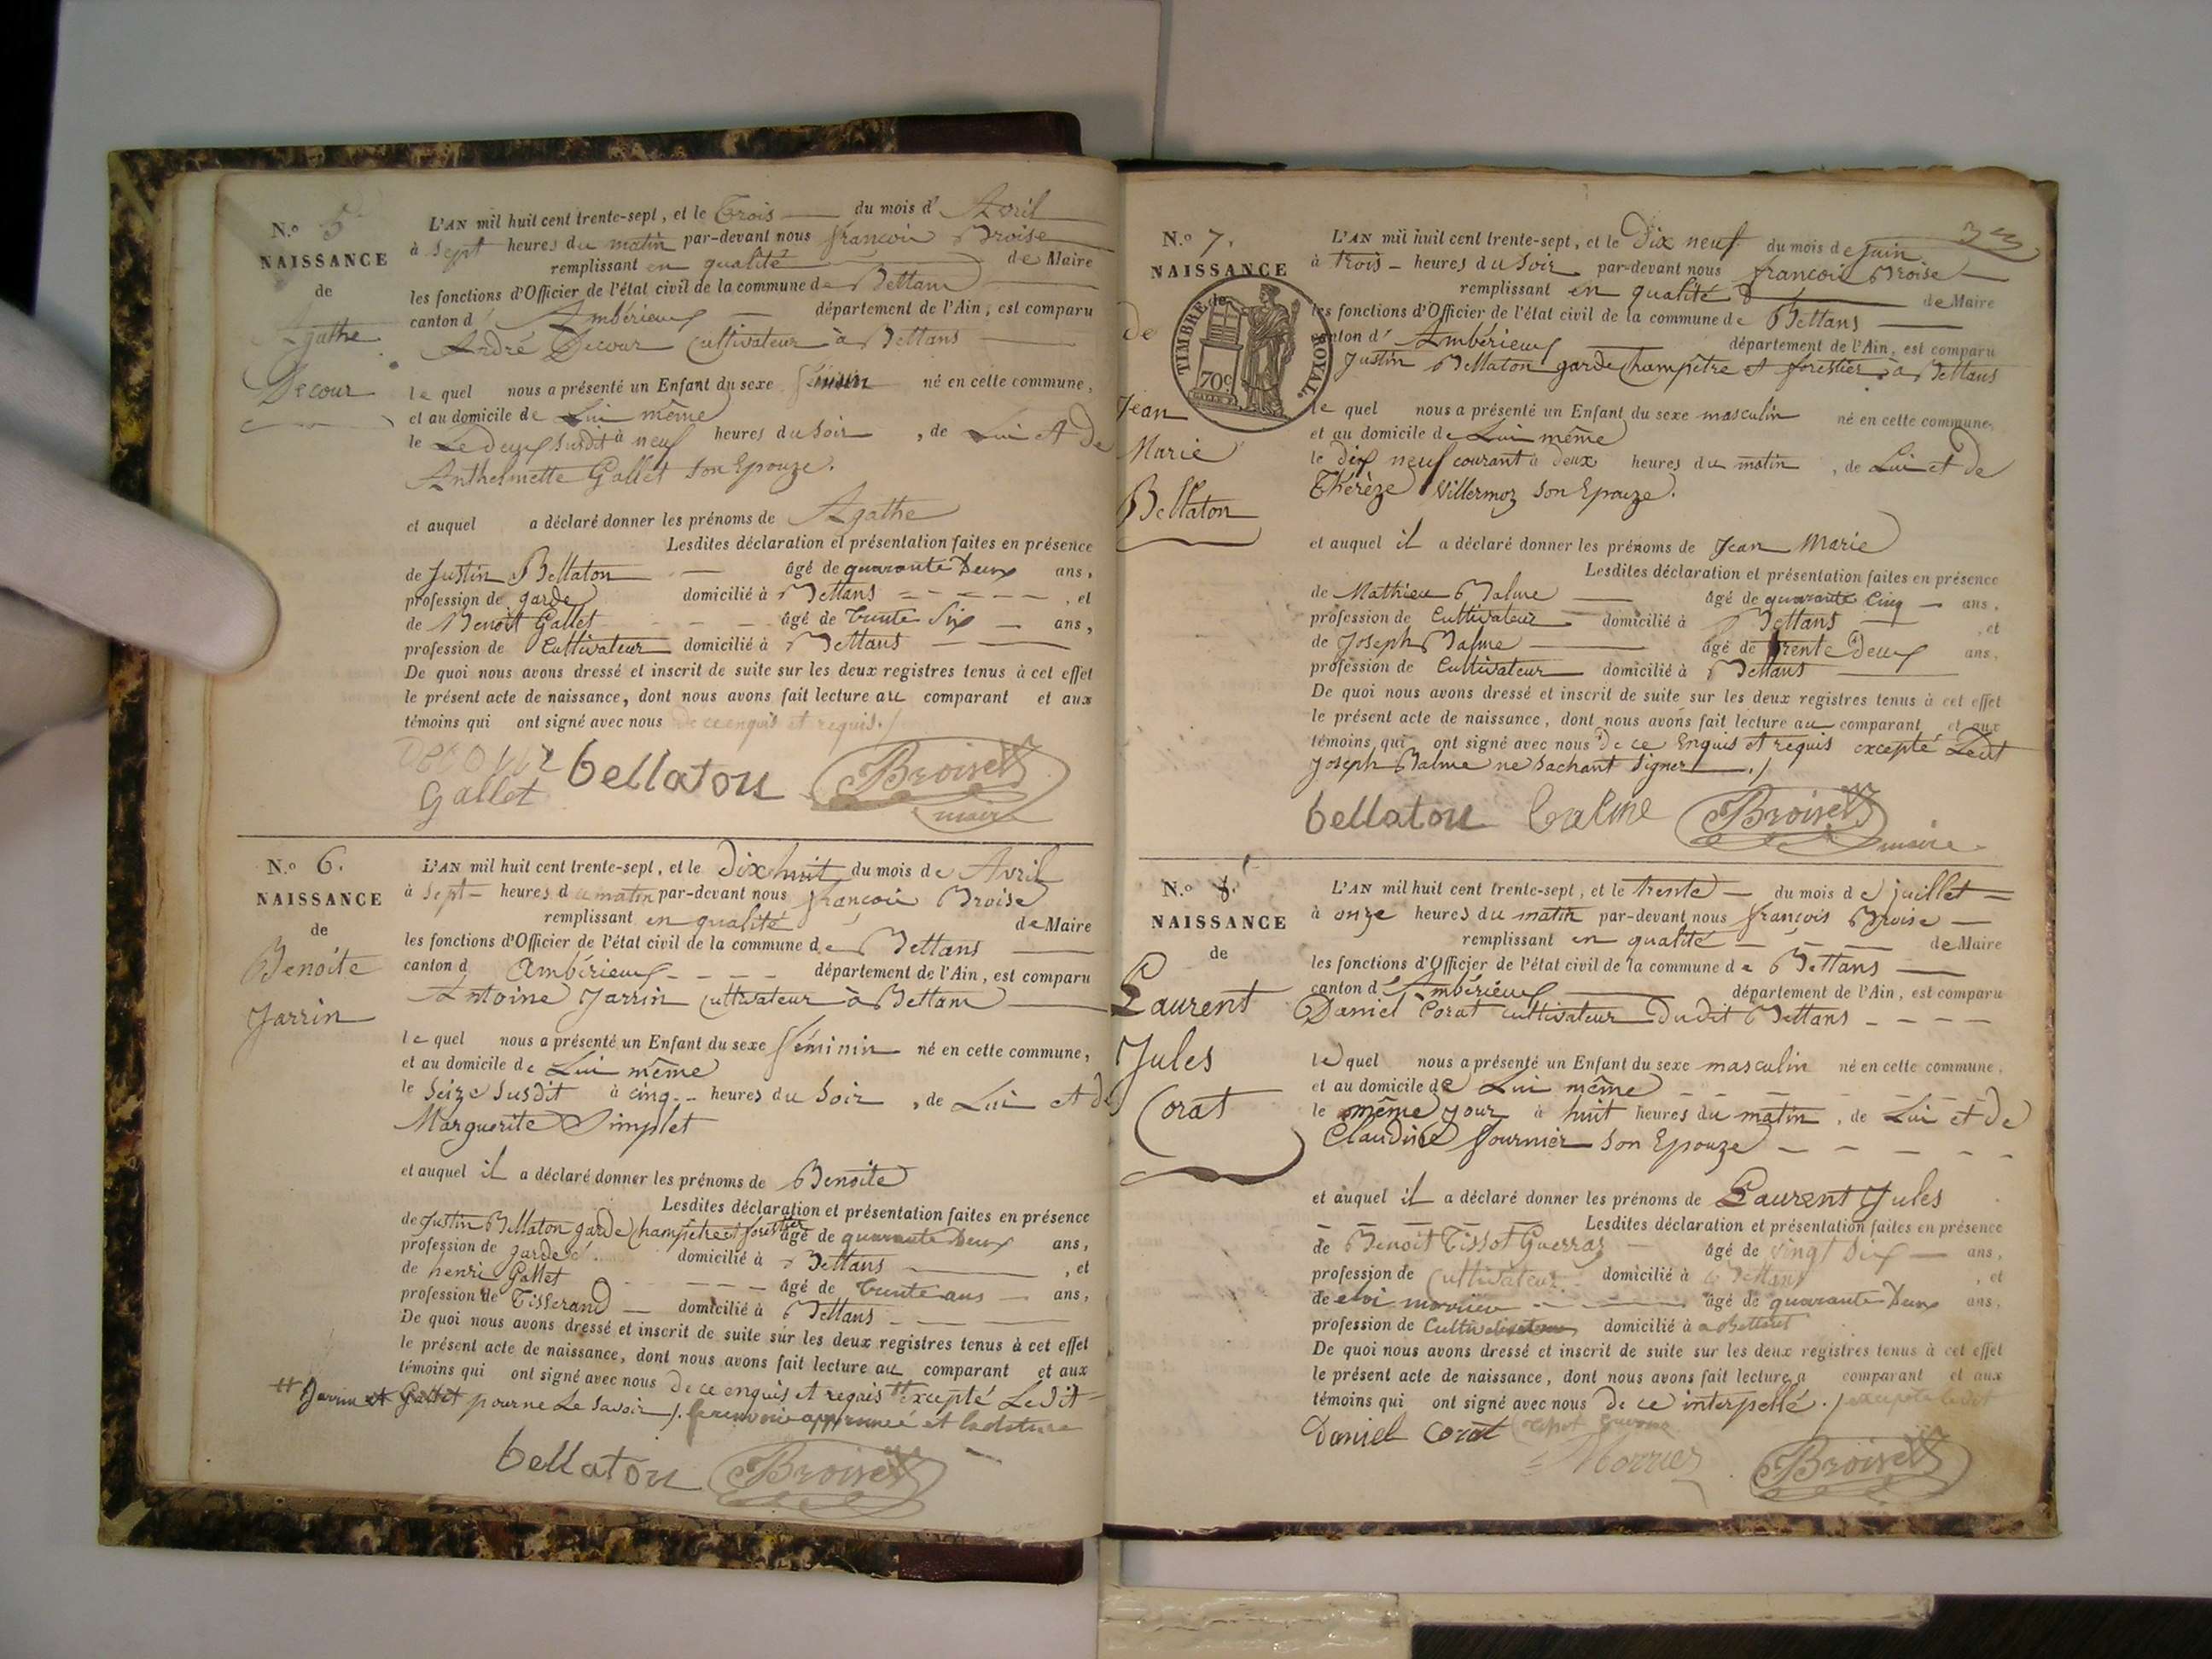 N.º 5
NAISSANCE
de
Agathe
Decour
L'AN mil huit cent trente-sept, et le Trois du mois d' Avril
à Sept heures du matin par-devant nous françois Broise
remplissant en qualité de Maire
les fonctions d'Officier de l'état civil de la commune de Bettans
canton d' Ambérieux département de l'Ain, est comparu
André Decour Cultivateur à Bettans
le quel nous a présenté un Enfant du sexe féminin né en cette commune,
et au domicile de Lui même
le Le deux susdit à neuf heures du Soir, de Lui et de
Anthelmette Gallet son Epouze.
et auquel a déclaré donner les prénoms de Agathe
Lesdites déclaration et présentation faites en présence
de Justin Bellaton âgé de quarante Deux ans,
profession de garde domicilié à Bettans, et
de Benoit Gallet âgé de trente Six ans,
profession de Cultivateur domicilié à Bettans
De quoi nous avons dressé et inscrit de suite sur les deux registres tenus à cet effet
le présent acte de naissance, dont nous avons fait lecture au comparant et aux
témoins qui ont signé avec nous de ce enquis et requis./
Decour bellaton Broise
Gallet maire
N.º 6.
NAISSANCE
de
Benoite
Jarrin
L'AN mil huit cent trente-sept, et le Dix huit du mois de Avril
à Sept heures du matin par-devant nous françois Broise
remplissant en qualité de Maire
les fonctions d'Officier de l'état civil de la commune de Bettans
canton d Ambérieux département de l'Ain, est comparu
Antoine Jarrin cultivateur à Bettans
le quel nous a présenté un Enfant du sexe féminin né en cette commune,
et au domicile de Lui même
le Seize Susdit à cinq heures du Soir, de Lui et de
Marguerite Simplet
et auquel il a déclaré donner les prénoms de Benoite
Lesdites déclaration et présentation faites en présence
de Justin Bellaton garde Champêtre et forestier âgé de quarante Deux ans,
profession de garde domicilié à Bettans, et
de henri Gallet âgé de trente ans ans,
profession de Tisserand domicilié à Bettans
De quoi nous avons dressé et inscrit de suite sur les deux registres tenus à cet effet
le présent acte de naissance, dont nous avons fait lecture au comparant et aux
témoins qui ont signé avec nous De ce enquis et requis excepté Ledit
Jarrin et Gallet pour ne Le Savoir./. le renvoi approuvé et
bellaton Broise
3
N.º 7.
NAISSANCE
TIMBRE ROYAL.
70c
de
Jean
Marie
Bellaton
L'AN mil huit cent trente-sept, et le Dix neuf du mois de Juin
à trois heures du Soir par-devant nous françois Broise
remplissant en qualité de Maire
les fonctions d'Officier de l'état civil de la commune de Bettans
canton d' Ambérieux département de l'Ain, est comparu
Justin Bellaton garde Champêtre et forestier à Bettans
le quel nous a présenté un Enfant du sexe masculin né en cette commune,
et au domicile de Lui même
le dix neuf courant à deux heures du matin, de Lui et de
Thérèze Villermoz son Epouze.
et auquel il a déclaré donner les prénoms de Jean Marie
Lesdites déclaration et présentation faites en présence
de Mathieu Balme âgé de quarante Cinq ans,
profession de Cultivateur domicilié à Bettans, et
de Joseph Balme âgé de trente Deux ans,
profession de Cultivateur domicilié à Bettans
De quoi nous avons dressé et inscrit de suite sur les deux registres tenus à cet effet
le présent acte de naissance, dont nous avons fait lecture au comparant et aux
témoins qui ont signé avec nous De ce Enquis et requis excepté Ledit
Joseph Balme ne Sachant Signer./
bellaton balme Broise
maire
N.º 8.
NAISSANCE
de
Laurent
Jules
Corat
L'AN mil huit cent trente-sept, et le trente du mois de juillet
à onze heures du matin par-devant nous françois Broise
remplissant en qualité de Maire
les fonctions d'Officier de l'état civil de la commune de Bettans
canton d' Ambérieux département de l'Ain, est comparu
Daniel Corat cultivateur Dudit Bettans
le quel nous a présenté un Enfant du sexe masculin né en cette commune,
et au domicile de Lui même
le même jour à huit heures du matin, de Lui et de
Claudine fournier son Epouze
et auquel il a déclaré donner les prénoms de Laurent Jules
Lesdites déclaration et présentation faites en présence
de Benoit Tissot Guerraz âgé de vingt Six ans,
profession de Cultivateur domicilié à Bettans, et
de eloi morrier âgé de quarante Deux ans,
profession de Cultivateur domicilié à Bettans
De quoi nous avons dressé et inscrit de suite sur les deux registres tenus à cet effet
le présent acte de naissance, dont nous avons fait lecture a comparant et aux
témoins qui ont signé avec nous de ce interpellé./
Daniel Corat
Morrier Broise